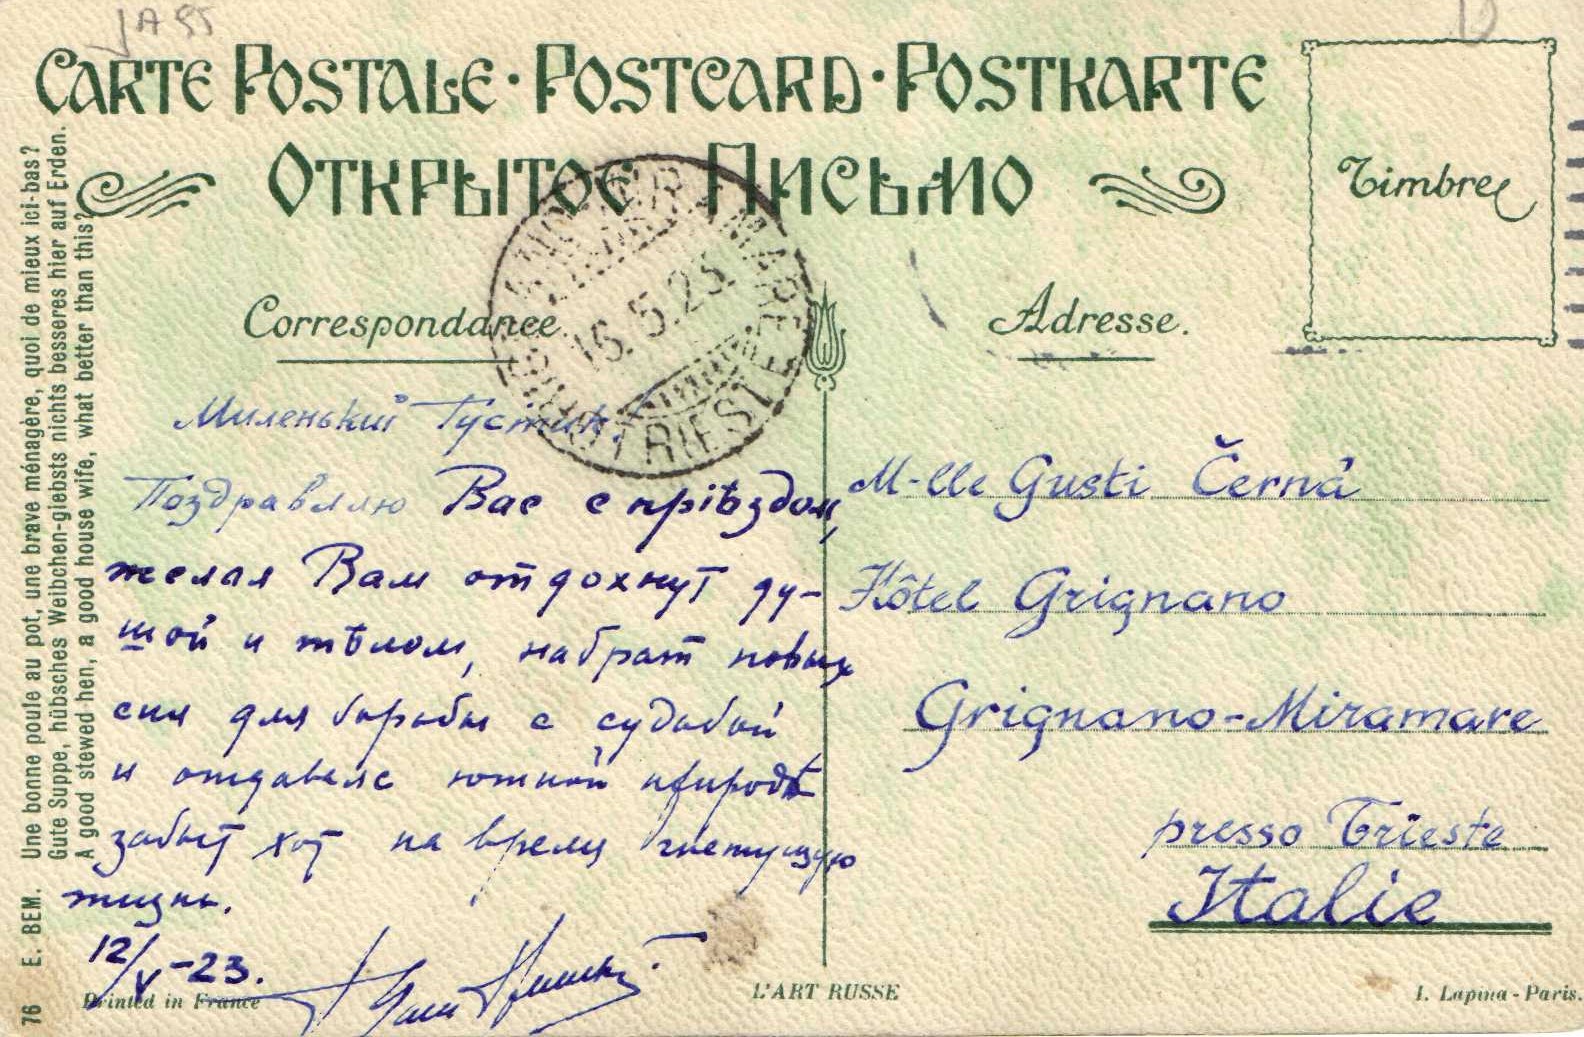 JA 95
CARTE POSTALE · POSTCARD · POSTKARTE
ОТКРЫТОЕ ПИСЬМО
Timbre
Correspondance
Adresse.
16.5.23.
TRIESTE
Миленький Густик!
Поздравляю Вас с прiѣздом,
желая Вам отдохнут ду-
шой и тѣлом, набрат новых
сил для борьбы с судьбой
и отдавшись южной природѣ
забыт хот на время гнетущую
жизнь.
12/V-23.
M-lle Gusti Černá
Hôtel Grignano
Grignano-Miramare
presso Trieste
Italie
76 E. BEM. Une bonne poule au pot, une brave ménagère, quoi de mieux ici-bas?
Gute Suppe, hübsches Weibchen-giebsts nichts besseres hier auf Erden.
A good stewed hen, a good house wife, what better than this?
Printed in France
L'ART RUSSE
I. Lapina - Paris.